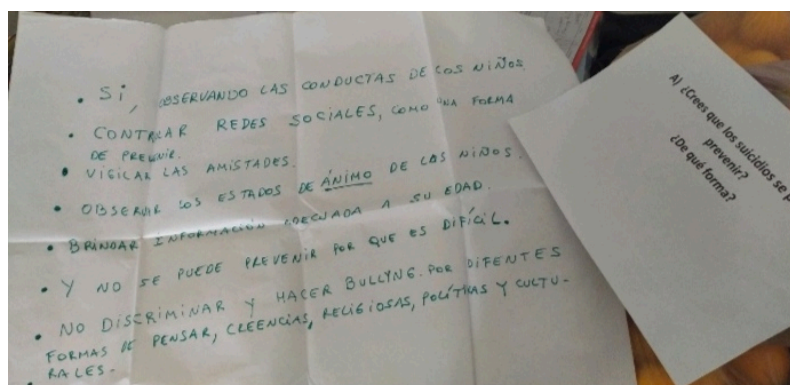 • Si, OBSERVANDO LAS CONDUCTAS DE LOS NIÑOS
• CONTRLAR REDES SOCIALES, COMO UNA FORMA
DE PREVENIR.
• VIGILAR LAS AMISTADES.
• OBSERVAR LOS ESTADOS DE ÁNIMO DE LOS NIÑOS.
• BRINDAR INFORMACIÓN ADECUADA A SU EDAD.
• Y NO SE PUEDE PREVENIR POR QUE ES DIFÍCIL.
• NO DISCRIMINAR Y HACER BULLYNG. POR DIFENTES
FORMAS DE PENSAR, CREENCIAS, RELIGIOSAS, POLÍTICAS Y CULTU-
RALES.
A) ¿Crees que los suicidios se
prevenir?
¿De qué forma?